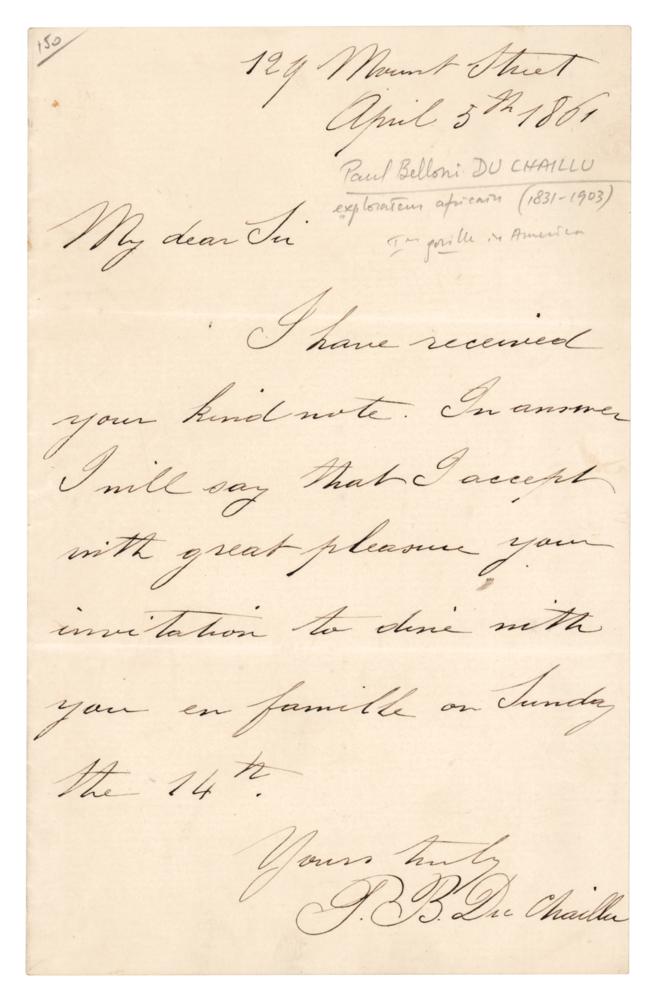 150
129 Mount Street
April 5th 1861
Paul Belloni DU CHAILLU
explorateur africain (1831-1903)
gorille in America
My dear Sir
I have received
your kind note. In answer
I will say that I accept
with great pleasure your
invitation to dine with
you en famille on Sunday
the 14th.
Yours truly
P. B. Du Chaillu